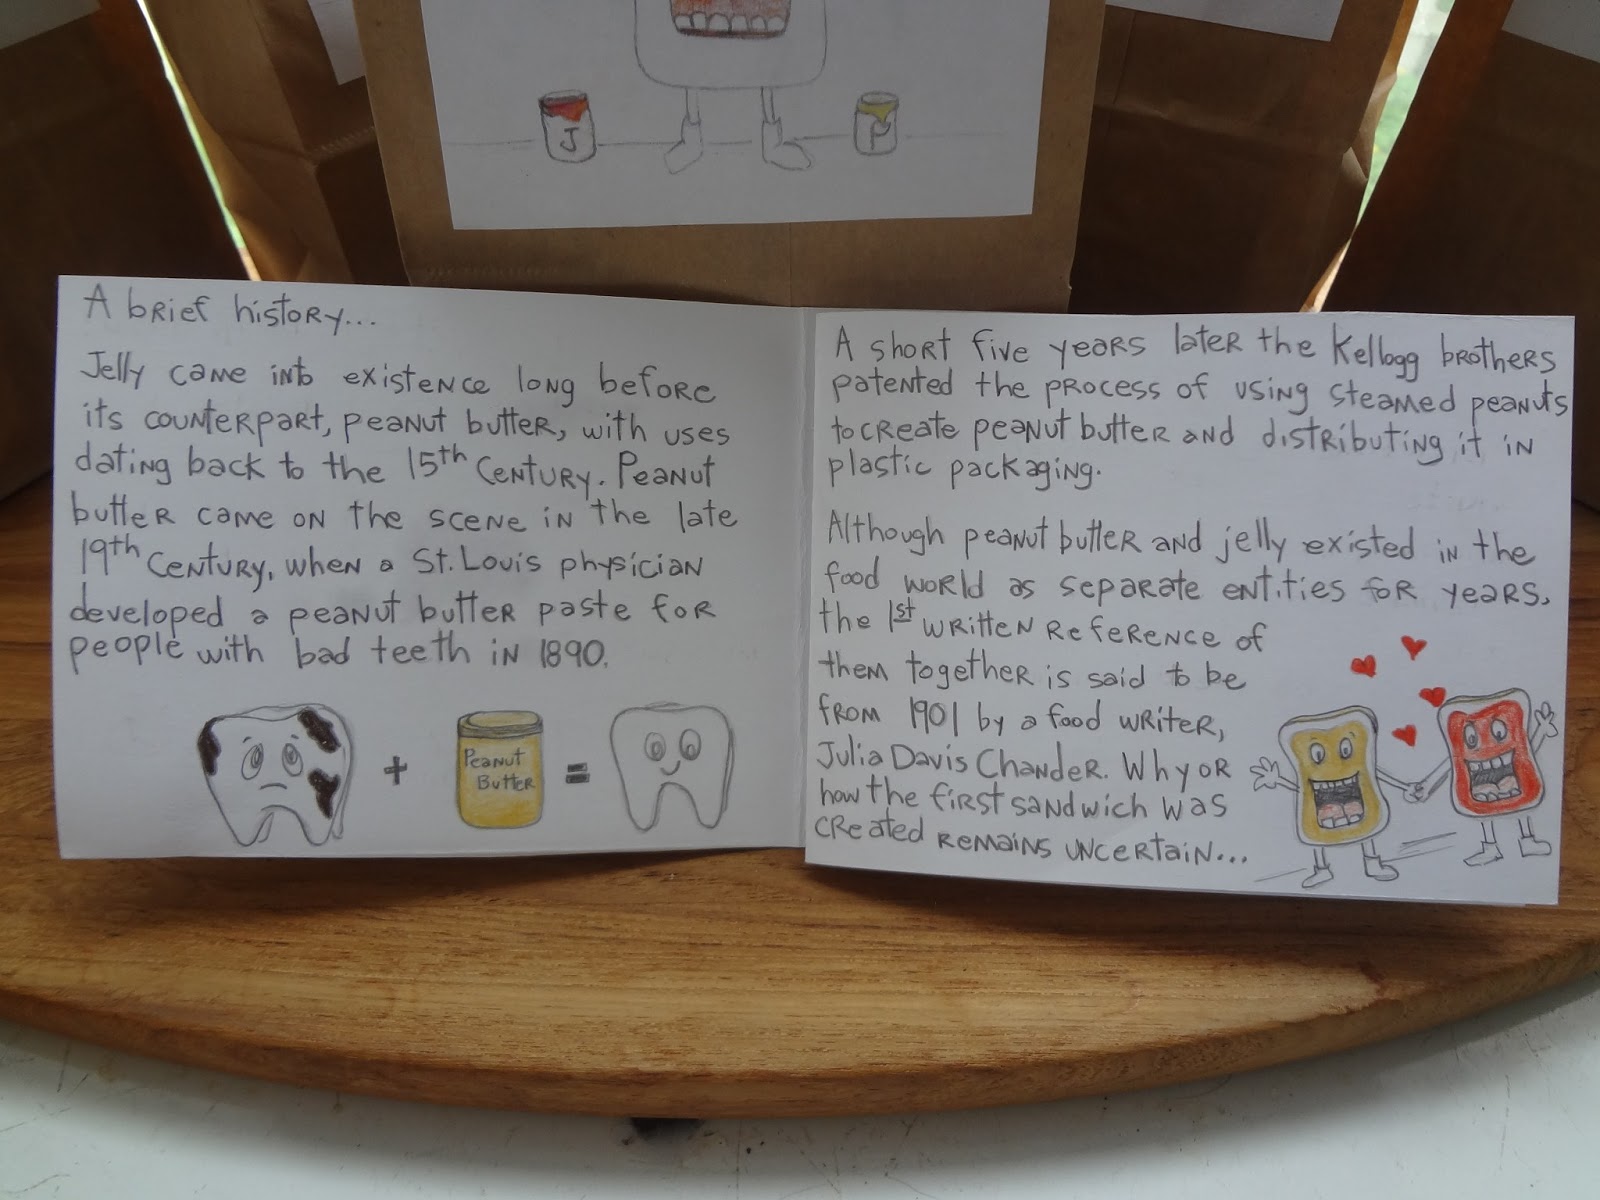 J
P
A brief history...
Jelly came into existence long before
its counterpart, peanut butter, with uses
dating back to the 15th century. Peanut
butter came on the scene in the late
19th century, when a St. Louis physician
developed a peanut butter paste for
people with bad teeth in 1890.
+
Peanut
Butter
=
A short five years later the Kellogg brothers
patented the process of using steamed peanuts
to create peanut butter and distributing it in
plastic packaging.
Although peanut butter and jelly existed in the
food world as separate entities for years,
the 1st written reference of
them together is said to be
from 1901 by a food writer,
Julia Davis Chander. Why or
how the first sandwich was
created remains uncertain...